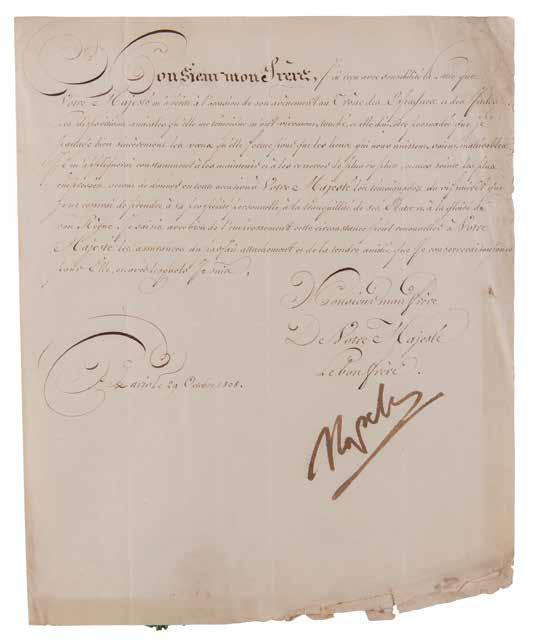 Monsieur mon Frère, j'ai reçu avec sensibilité la lettre que
Votre Majesté m'a écrite à l'occasion de son avènement au Trône des Espagnes et des Indes.
Les dispositions amicales qu'elle me témoigne m'ont vivement touché, et elle doit être persuadée que je
partage bien sincèrement les vœux qu'elle forme pour que les liens qui nous unissent, soient inaltérables.
Je m'appliquerai constamment à les maintenir et à les resserrer de plus en plus, et mes soins les plus
empressés, seront de donner en toute occasion à Votre Majesté des témoignages du vif intérêt que
je ne cesserai de prendre à sa prospérité personnelle, à la tranquillité de ses États et à la gloire de
son Règne. Je saisis avec bien de l'empressement cette circonstance pour renouveller à Votre
Majesté les assurances du parfait attachement et de la tendre amitié que je conserverai toujours
pour Elle, et avec lesquels je suis,
Monsieur mon frère
De Votre Majesté
Le bon frère.
À Paris le 29 Octobre 1808.
Napole